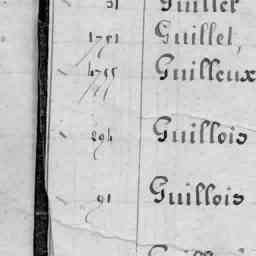 51 Guillet
1751 Guillet,
4755 Guilleux
294 Guillois
91 Guillois